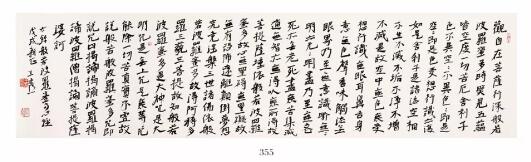 觀自在菩薩行深般若
波羅蜜多時照見五蘊
皆空度一切苦厄舍利子
色不異空空不異色色即是
空空即是色受想行識亦復
如是舍利子是諸法空相
不生不滅不垢不淨不增
不減是故空中無色無受
想行識無眼耳鼻舌身
意無色聲香味觸法無
眼界乃至無意識界無無
明亦無無明盡乃至無老
死亦無老死盡無苦集滅
道無智亦無得以無所得故
菩提薩埵依般若波羅
蜜多故心無罣礙無罣礙故
無有恐怖遠離顛倒夢想
究竟涅槃三世諸佛依般
若波羅蜜多故得阿耨多
羅三藐三菩提故知般若
波羅蜜多是大神咒是大
明咒是無上咒是無等等咒
能除一切苦真實不虛故
說般若波羅蜜多咒即
說咒曰揭諦揭諦波羅揭
諦波羅僧揭諦菩提薩
婆訶
般若波羅蜜多心經
355